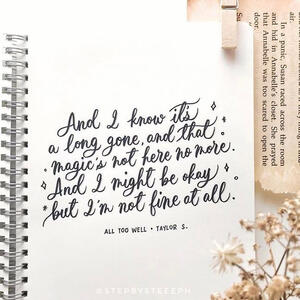 And I know it's
a long gone, and that
magic's not here no more.
And I might be okay
but I'm not fine at all.
ALL TOO WELL • TAYLOR S.
@STEPBYSTEEEPH
air.
In a panic, Susan raced across the room
and hid in Annabelle's closet. She prayed
that Annabelle was too scared to open the
door.